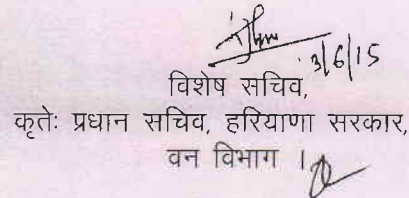 3/6/15
विशेष सचिव,
कृतेः प्रधान सचिव, हरियाणा सरकार,
वन विभाग ।